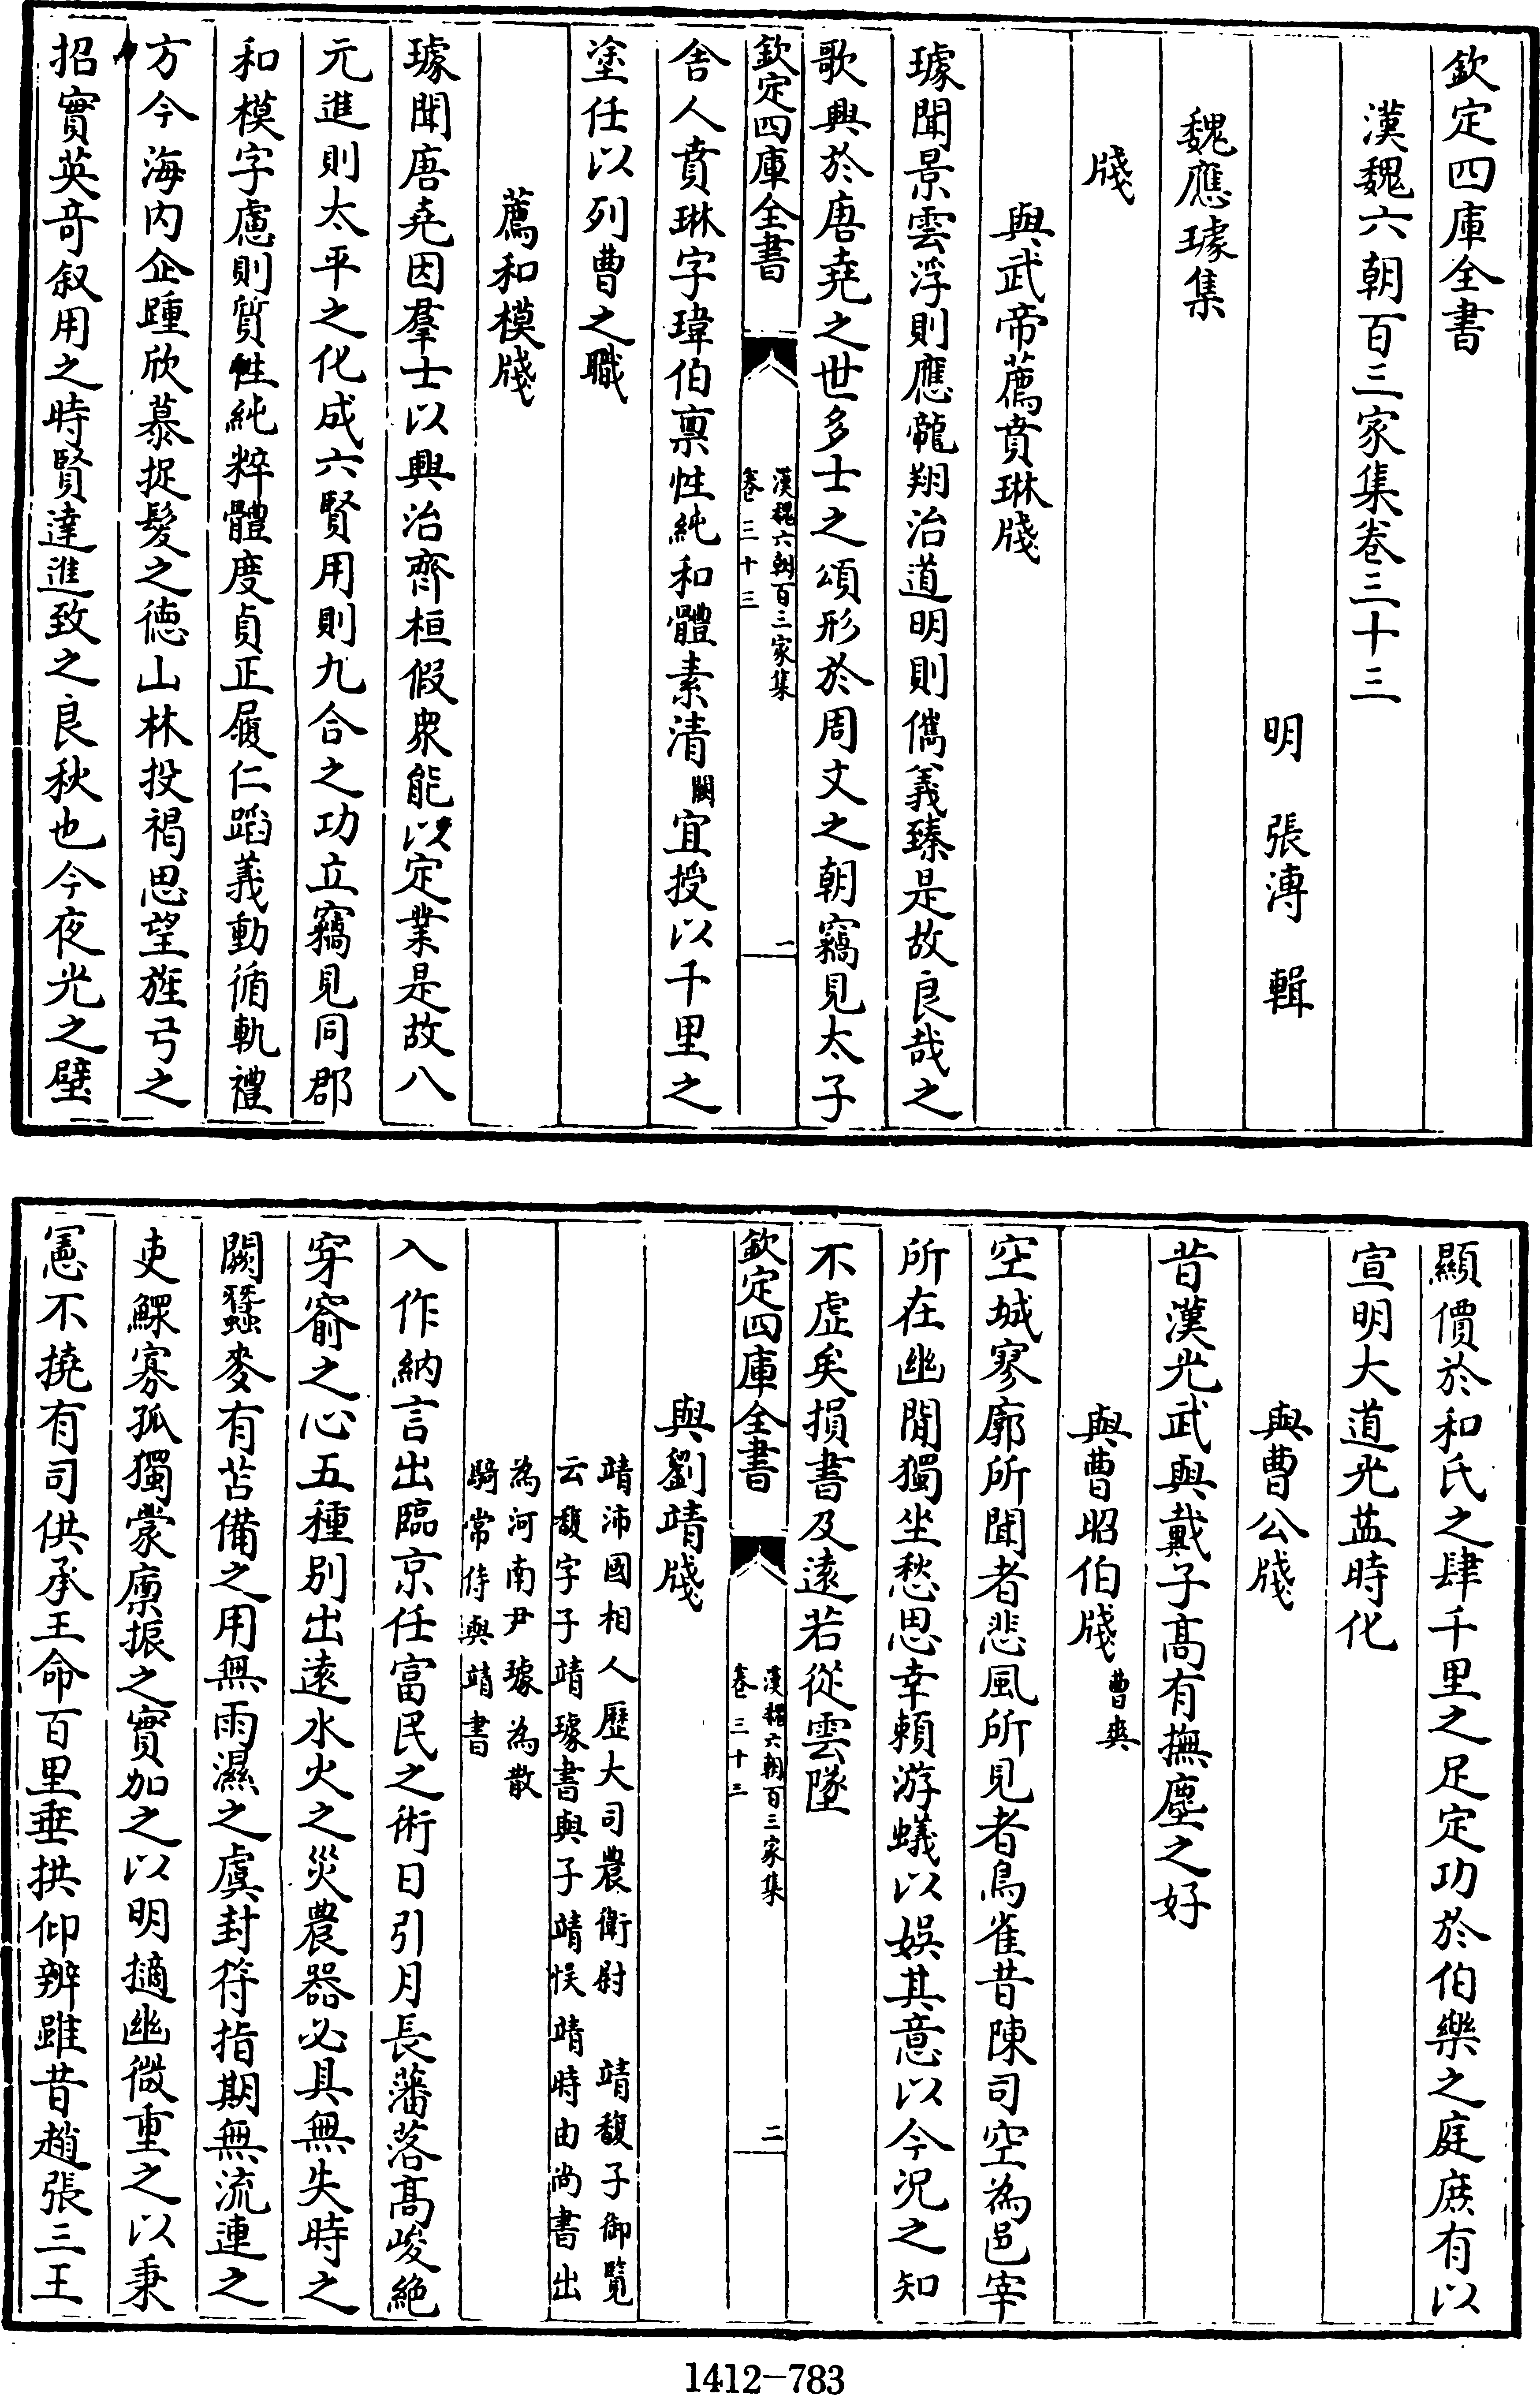 欽定四庫全書
漢魏六朝百三家集卷三十三
明 張溥 輯
魏應璩集
牋
與武帝薦賁琳牋
璩聞景雲浮則應龍翔治道明則儁義臻是故良哉之
歌興於唐堯之世多士之頌形於周文之朝竊見太子
欽定四庫全書
漢魏六朝百三家集
卷三十三
一
舍人賁琳字瑋伯稟性純和體素清闕宜授以千里之
塗任以列曹之職
薦和模牋
璩聞唐堯因羣士以興治齊桓假衆能以定業是故八
元進則太平之化成六賢用則九合之功立竊見同郡
和模字慮則質性純粹體度貞正履仁蹈義動循軌禮
方今海内企踵欣慕捉髮之德山林投褐思望旌弓之
招實英奇叙用之時賢達進致之良秋也今夜光之璧
顯價於和氏之肆千里之足定功於伯樂之庭庶有以
宣明大道光益時化
與曹公牋
昔漢光武與戴子高有撫塵之好
與曹昭伯牋曹爽
空城寥廓所聞者悲風所見者鳥雀昔陳司空為邑宰
所在幽閒獨坐愁思幸賴游蟻以娛其意以今況之知
不虛矣損書及遠若從雲墜
欽定四庫全書
漢魏六朝百三家集
卷三十三
二
與劉靖牋
靖沛國相人歷大司農衛尉 靖馥子御覽
云馥字子靖璩書與子靖悮 靖時由尚書出
為河南尹璩為散
騎常侍與靖書
入作納言出臨京任富民之術日引月長藩落高峻絶
穿窬之心五種别出遠水火之災農器必具無失時之
闕蠶麥有苫備之用無雨濕之虞封符指期無流連之
吏鰥寡孤獨蒙廩振之實加之以明擿幽微重之以秉
憲不撓有司供承王命百里垂拱仰辨雖昔趙張三王
1412-783